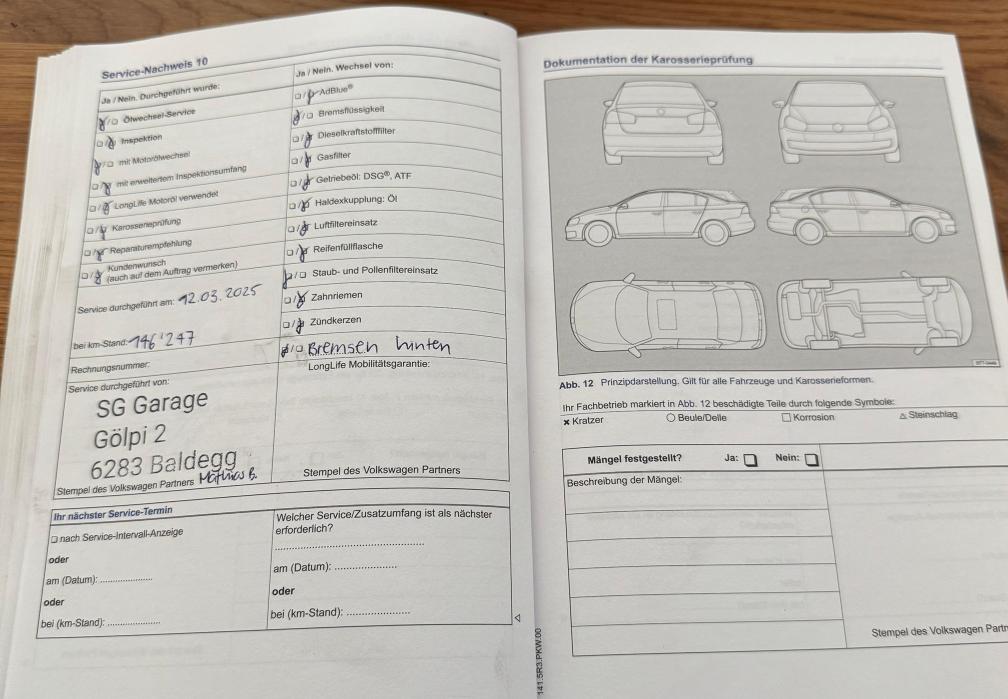 Service-Nachweis 10
Ja / Nein. Durchgeführt wurde:
☒/☐ Ölwechsel-Service
☐/☒ Inspektion
☒/☐ mit Motorölwechsel
☐/☒ mit erweitertem Inspektionsumfang
☐/☒ LongLife Motoröl verwendet
☐/☒ Karosserieprüfung
☐/☒ Reparaturempfehlung
☐/☒ Kundenwunsch
(auch auf dem Auftrag vermerken)
Service durchgeführt am: 12.03.2025
bei km-Stand: 146'247
Rechnungsnummer:
Service durchgeführt von:
SG Garage
Gölpi 2
6283 Baldegg
Stempel des Volkswagen Partners Mathias B.
Ja / Nein. Wechsel von:
☐/☒ AdBlue®
☒/☐ Bremsflüssigkeit
☐/☒ Dieselkraftstofffilter
☐/☒ Gasfilter
☐/☒ Getriebeöl: DSG®, ATF
☐/☒ Haldexkupplung: Öl
☐/☒ Luftfiltereinsatz
☐/☒ Reifenfüllflasche
☒/☐ Staub- und Pollenfiltereinsatz
☐/☒ Zahnriemen
☐/☒ Zündkerzen
☒/☐ Bremsen hinten
LongLife Mobilitätsgarantie:
Stempel des Volkswagen Partners
Ihr nächster Service-Termin
☐ nach Service-Intervall-Anzeige
oder
am (Datum): ....................
oder
bei (km-Stand): ....................
Welcher Service/Zusatzumfang ist als nächster
erforderlich?
am (Datum): ....................
oder
bei (km-Stand): ....................
Dokumentation der Karosserieprüfung
Abb. 12 Prinzipdarstellung. Gilt für alle Fahrzeuge und Karosserieformen.
Ihr Fachbetrieb markiert in Abb. 12 beschädigte Teile durch folgende Symbole:
✖ Kratzer ○ Beule/Delle ☐ Korrosion △ Steinschlag
Mängel festgestellt? Ja: ☐ Nein: ☐
Beschreibung der Mängel:
Stempel des Volkswagen Partn
141.5R3.PKW.00